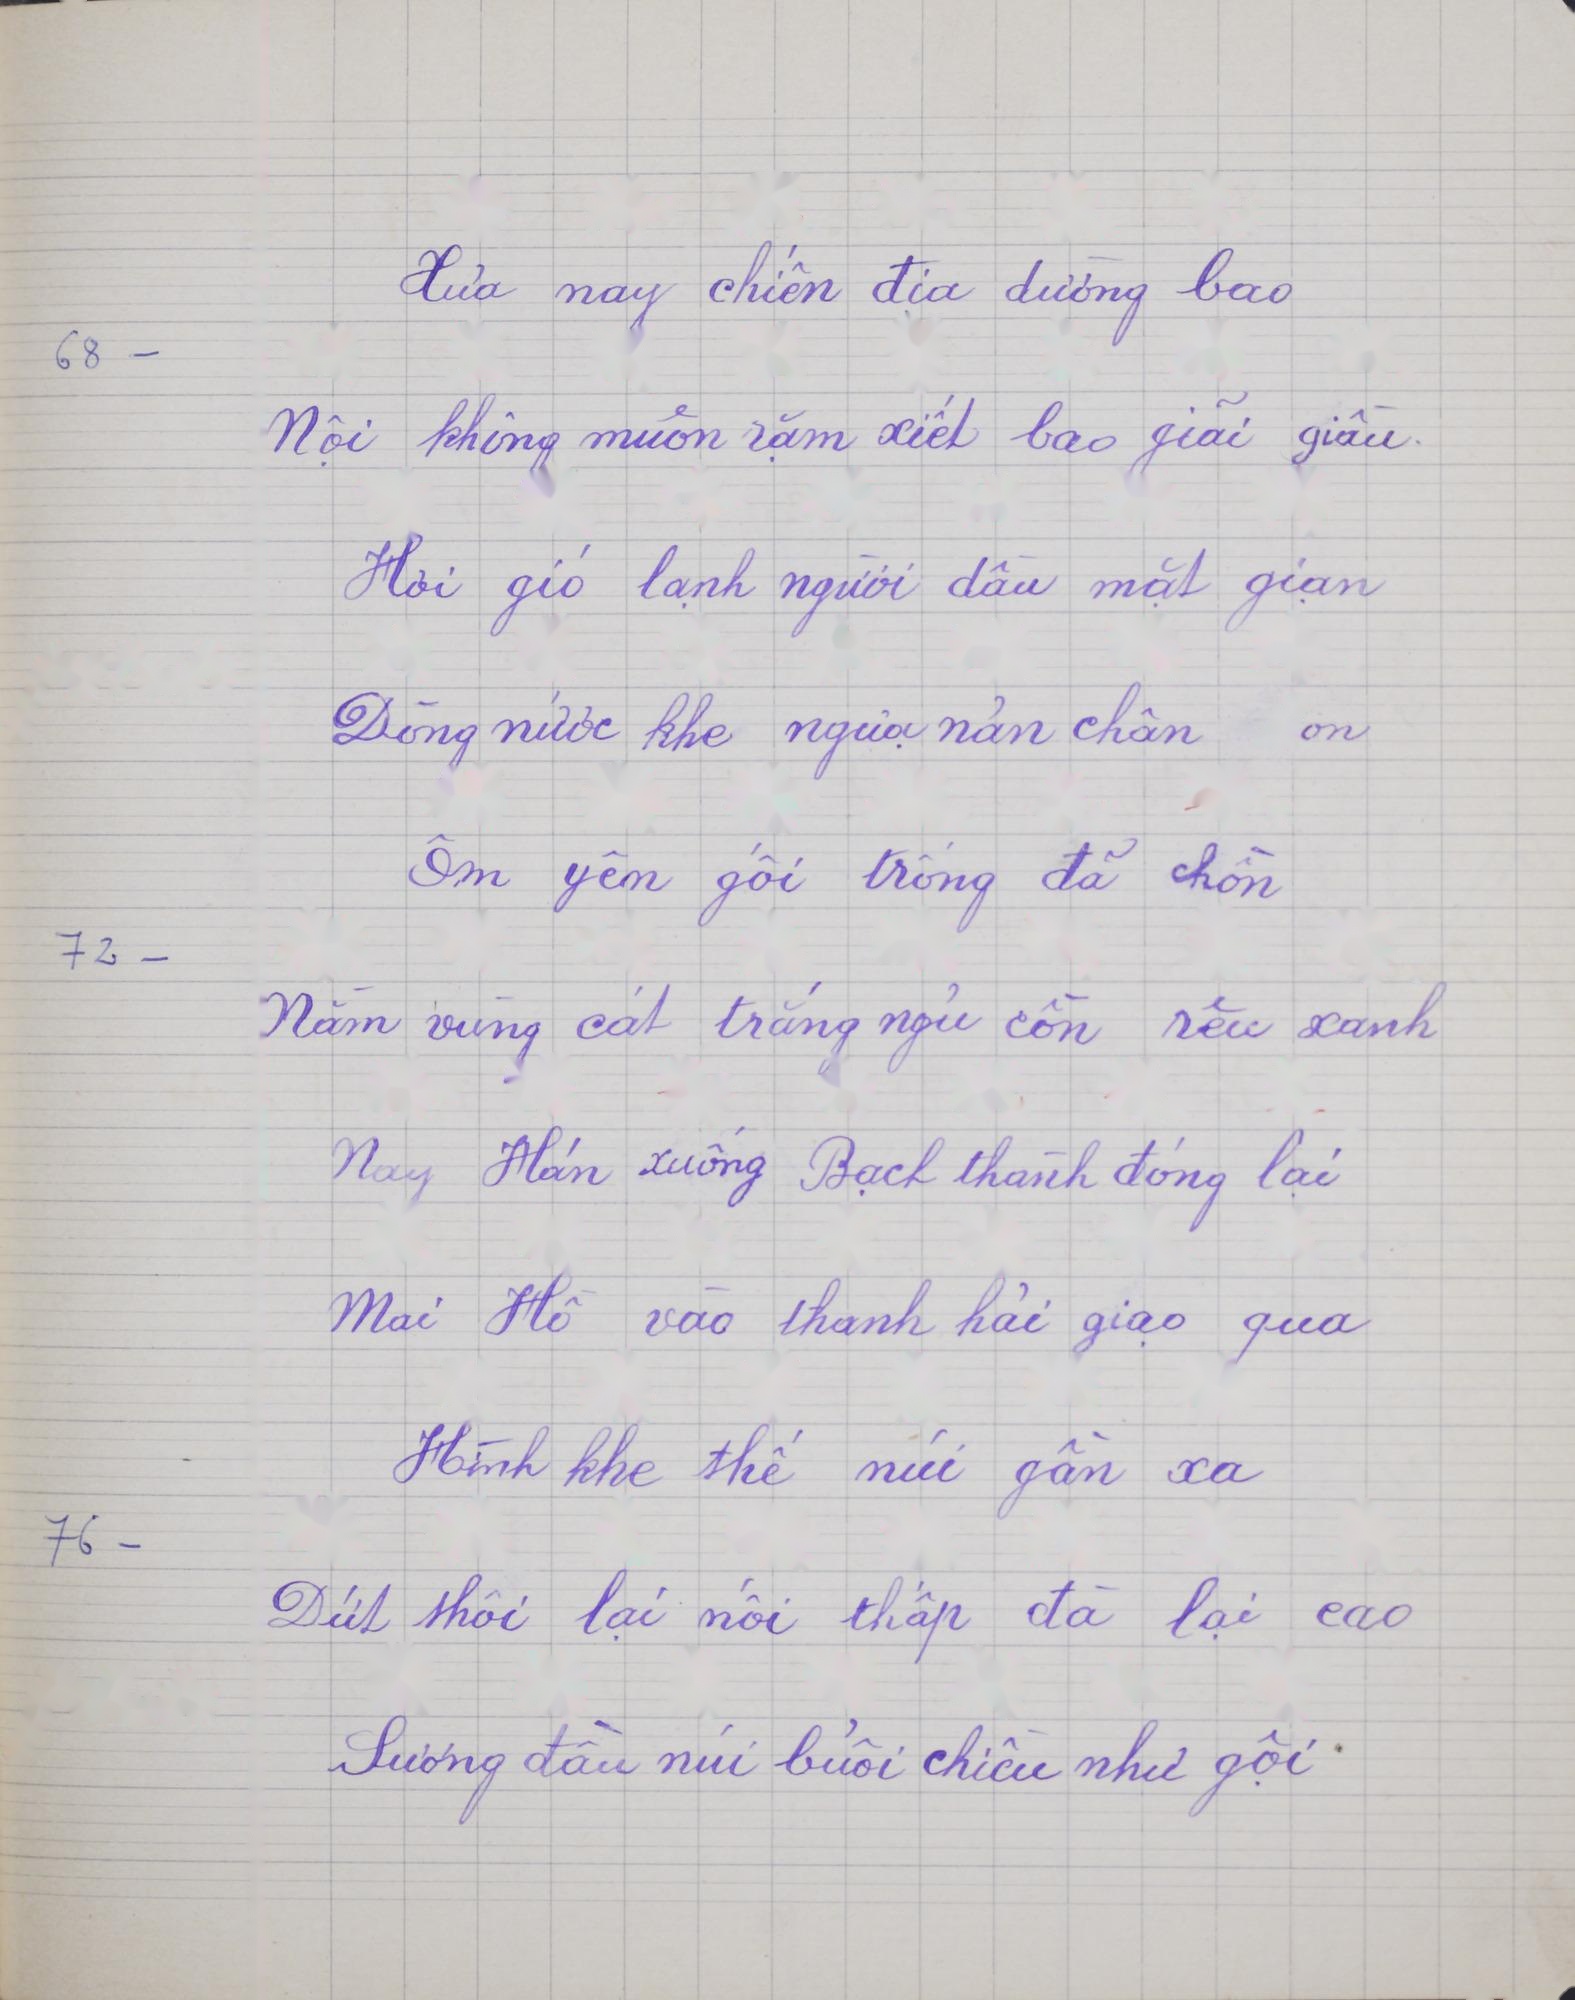 Xưa nay chiến địa dường bao
68 -
Nội không muôn rặm xiết bao giãi giầu.
Hơi gió lạnh người dầu mặt giạn
Dòng nước khe ngựa nản chân on
Ôm yên gối trống đã chồn
72 -
Nằm vùng cát trắng ngủ cồn rêu xanh
Nay Hán xuống Bạch thành đóng lại
Mai Hồ vào thanh hải giạo qua
Hình khe thế núi gần xa
76 -
Dứt thôi lại nối thấp đà lại cao
Sương đầu núi buổi chiều như gội